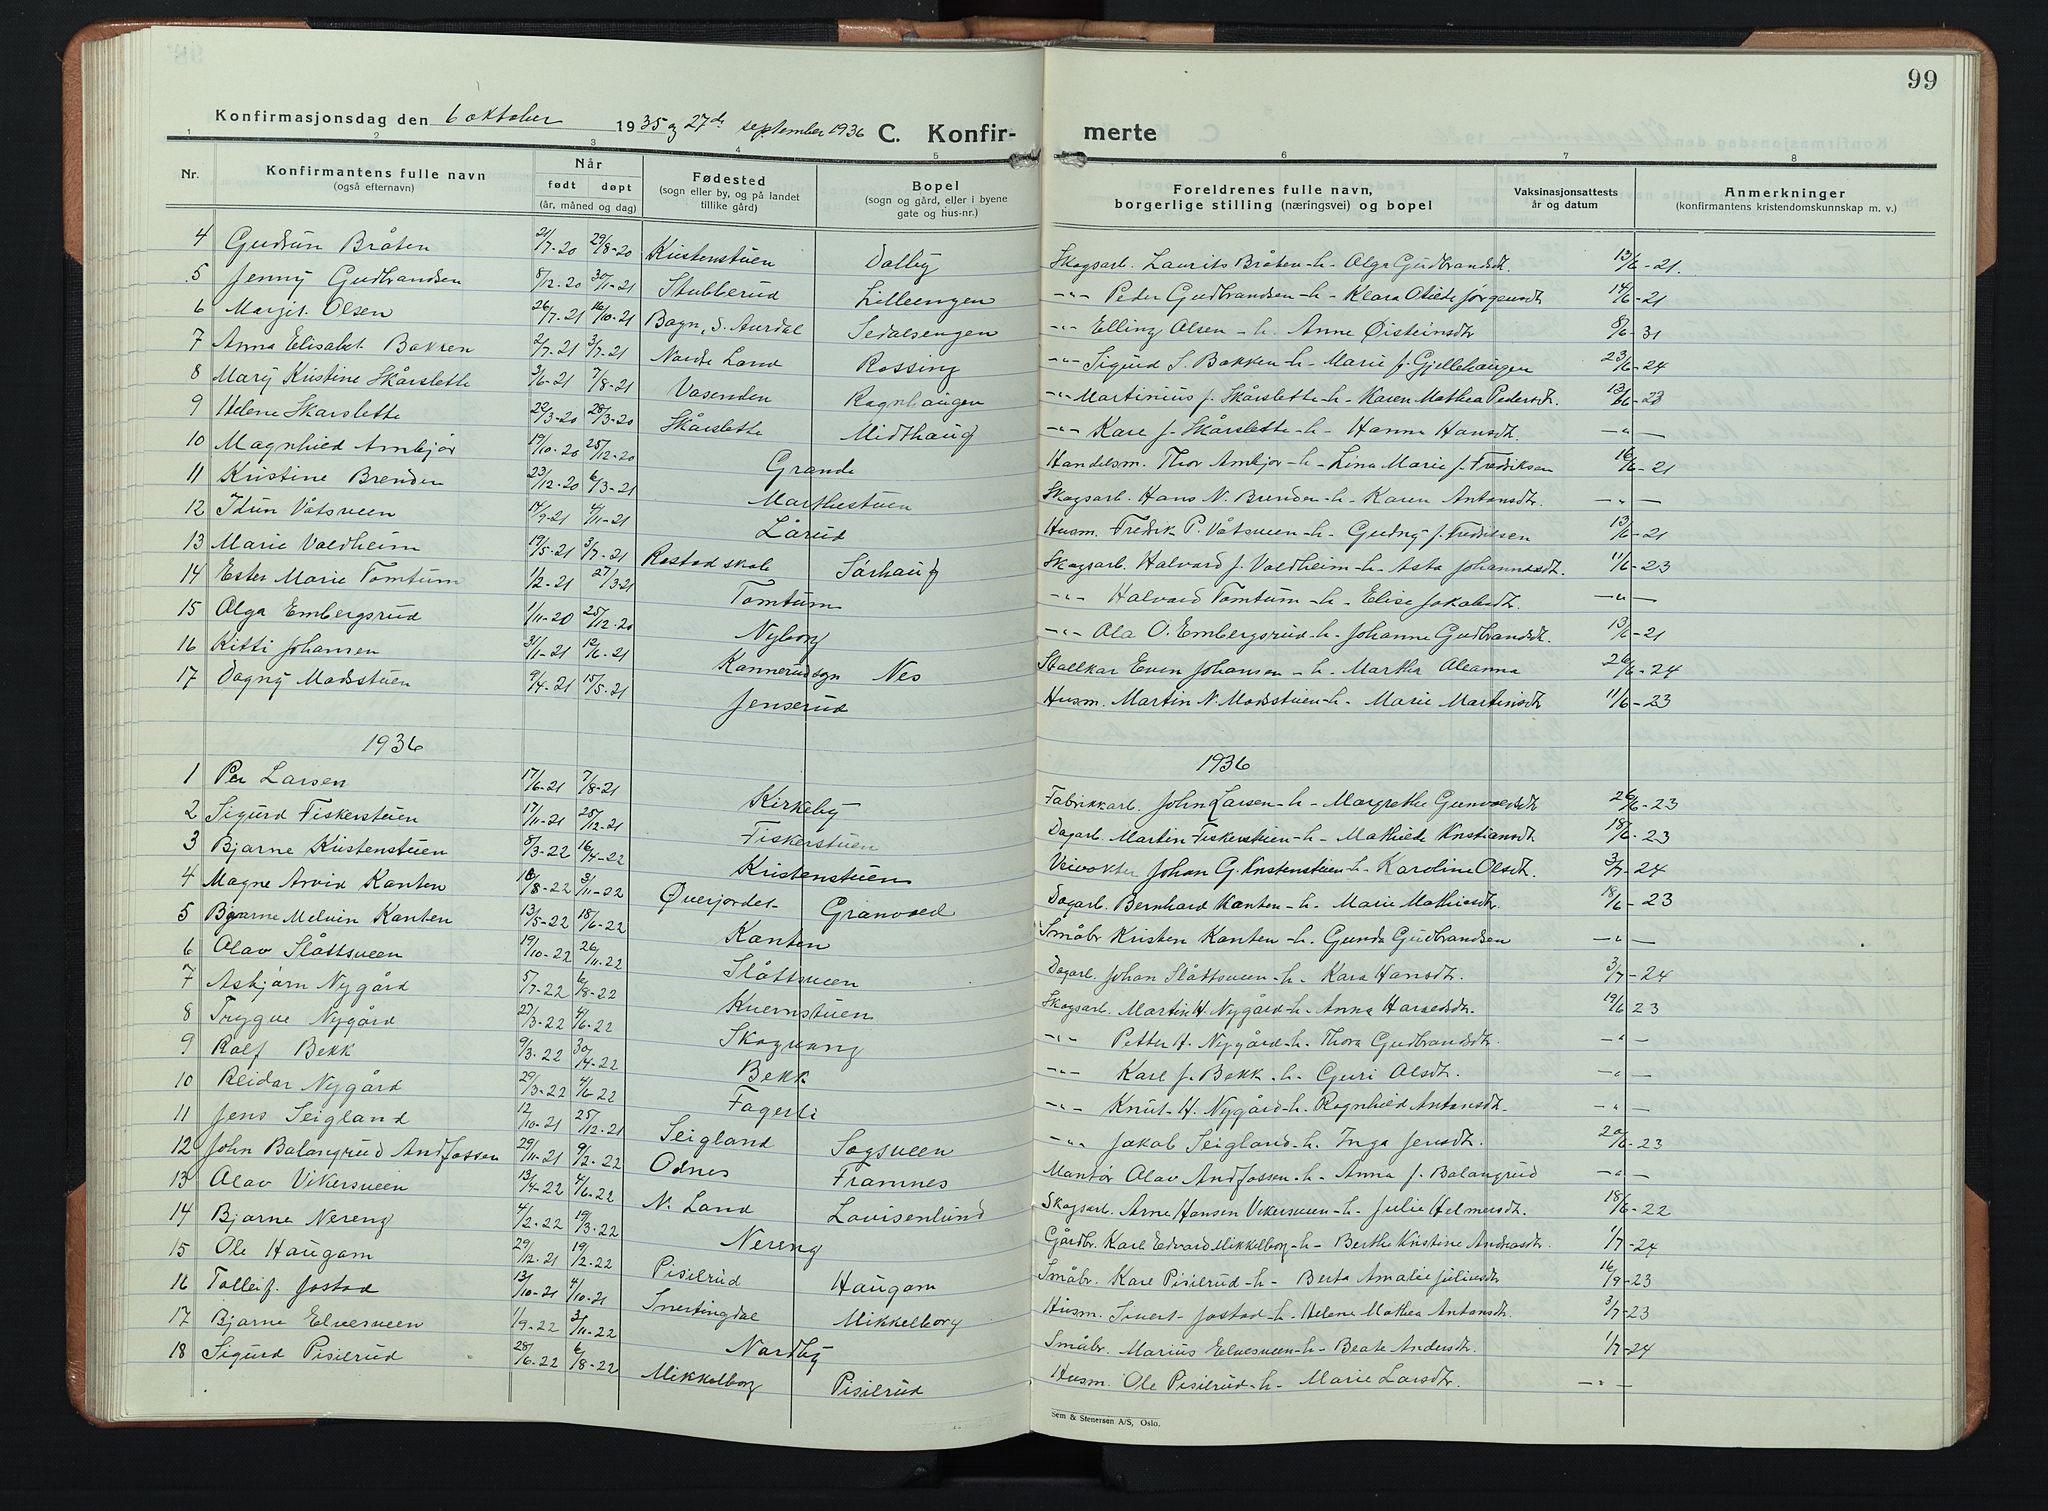 99
Konfirmasjonsdag den 6 oktober 1935 og 27de september 1936 C. Konfir-
merte
1 2 3 4 5 6 7 8
Nr. Konfirmantens fulle navn (også efternavn) Når født døpt (år, måned og dag) Fødested (sogn eller by, og på landet tillike gård) Bopel (sogn og gård, eller i byene gate og hus-nr.) Foreldrenes fulle navn, borgerlige stilling (næringsvei) og bopel Vaksinasjonsattests år og datum Anmerkninger (konfirmantens kristendomskunnskap m. v.)
4 Gudrun Bråten 21/7-20 29/8-20 Kristenstuen Dalby Skogsarb. Laurits Bråten -h- Olga Gudbrandsdt. 13/6-21.
5 Jenny Gudbrandsen 8/12-20 30/1-21 Stubberud Lilleengen -"- Peder Gudbrandsen -h- Klara Otilde Jørgensdt 14/6-21
6 Margit Olsen 26/7-21 16/10-21 Bagn, S. Aurdal Sedalsengen -"- Elling Olsen -h- Anne Øisteinsdt 8/6-31
7 Anna Elisabet Bakken 2/7-21 3/7-21 Nordre Land Rossing -"- Sigurd S. Bakken -h- Marie f. Gjellehaugen 23/6-24
8 Mary Kristine Skårslette 3/6-21 7/8-21 Vasenden Ragnhaugen -"- Martinius f. Skårslette -h- Karen Mathea Pedersdt. 13/6-23
9 Helene Skårslette 22/3-20 28/3-20 Skårslette Midthaug -"- Kare f. Skårslette -h- Hanna Hansdt. -"-
10 Magnhild Ambjør 19/10-20 25/12-20 Grande Handelsm. Thor Ambjør -h- Lina Marie f. Fredriksen 16/6-21
11 Kristine Brenden 23/12-20 6/3-21 Marthestuen Skogsarb. Hans N. Brenden -h- Karen Antonsdt. -"-
12 Idun Våtsveen 14/9-21 4/11-21 Lårud Husm. Fredrik P. Våtsveen -h- Gudny f. Fredriksen 13/6-21
13 Marie Valdheim 19/5-21 3/7-21 Rostad skole Sørhaug Skogsarb. Halvard J. Valdheim -h- Asta Johannesdt. 11/6-23
14 Ester Marie Tomtum 1/2-21 27/3-21 Tomtum -"- Halvard Tomtum -h- Elise Jakobsdt. -"-
15 Olga Embergsrud 1/11-20 25/12-20 Nyborg -"- Ola O. Embergsrud -h- Johanne Gudbrandsdt. 13/6-21
16 Kitti Johansen 31/1-21 12/6-21 Kannerudsgn Nes Stallkar Even Johansen -h- Martha Oleanna 26/6-24
17 Dagny Madsstuen 9/4-21 15/5-21 Jenserud Husm. Martin N. Madsstuen -h- Marie Martinsdt 11/6-23
1936
1936
1 Per Larsen 17/6-21 7/8-21 Kirkeby Fabrikkarb. John Larsen -h- Margrethe Gunvaldsdt 26/6-23
2 Sigurd Fiskerstuen 17/11-21 25/12-21 Fiskerstuen Dagarb. Martin Fiskerstuen -h- Mathilde Kristiansdt 18/6-23
3 Bjarne Kristenstuen 8/3-22 16/4-22 Kristenstuen Veivokter Johan G. Kristenstuen -h- Karoline Olsdt. 3/7-24
4 Magne Arvid Kanten 10/8-22 3/11-22 Øverjordet Granvold Dagarb. Bernhard Kanten -h- Marie Mathisdt. 18/6-23
5 Bjarne Melvin Kanten 13/5-22 18/6-22 Kanten Småbr. Kristen Kanten -h- Gunda Gudbrandsen -"-
6 Olav Slåttsveen 19/10-22 26/11-22 Slåttsveen Dagarb. Johan Slåttsveen -h- Kara Hansdt. 3/7-24
7 Asbjørn Nygård 5/7-22 6/8-22 Kvernstuen Skogsarb. Martin H. Nygård -h- Anna Haraldsdt. 19/6 23
8 Trygve Nygård 22/3-22 4/6-22 Skogvang -"- Petter H. Nygård -h- Thora Gudbrandsdt. -"-
9 Rolf Bekk 9/3-22 30/4-22 Bekk -"- Karl J. Bekk -h- Guri Olsdt. -"-
10 Reidar Nygård 29/3-22 4/6-22 Fagerli -"- Knut H. Nygård -h- Ragnhild Antonsdt. -"-
11 Jens Seigland 12/10-21 25/12-21 Seigland Sogsveen -"- Jakob Seigland -h- Inga Jensdt. 20/6-23
12 John Balangrud Andfossen 29/11-21 9/2-22 Odnes Framnes Montør Olav Andfossen -h- Anna f. Balangrud -"-
13 Olav Vikersveen 13/4-22 4/6-22 N. Land Lovisenlund Skogsarb. Arne Hansen Vikersveen -h- Julie Helmersdt. 18/6-22
14 Bjarne Nereng 4/2-22 19/3-22 Nereng Gårdbr. Karl Edvard Mikkelborg -h- Berthe Kristine Andreasdt. 1/7-24
15 Ole Haugom 29/12-21 19/2-22 Pisilrud Haugom Småbr. Kare Pisilrud -h- Berta Amalie Juliusdt 16/9-23
16 Talleif Jostad 13/10-21 4/10-21 Snertingdal Mikkelborg Husm. Sivert Jostad -h- Helene Mathea Antonsdt. 3/7-23
17 Bjarne Elvesveen 1/9-22 3/11-22 Nordby Småbr. Marius Elvesveen -h- Beate Andersdt. 1/7-24
18 Sigurd Pisilrud 28/6-22 6/8-22 Mikkelborg Pisilrud Husm. Ole Pisilrud -h- Marie Larsdt. -"-
Sem & Stenersen A/S, Oslo.